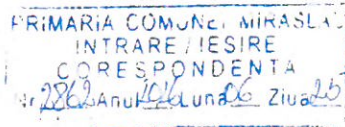 PRIMARIA COMUNEI MIRASLAU
INTRARE / IESIRE
CORESPONDENTA
Nr. 2862 Anul Luna 06 Ziua 26